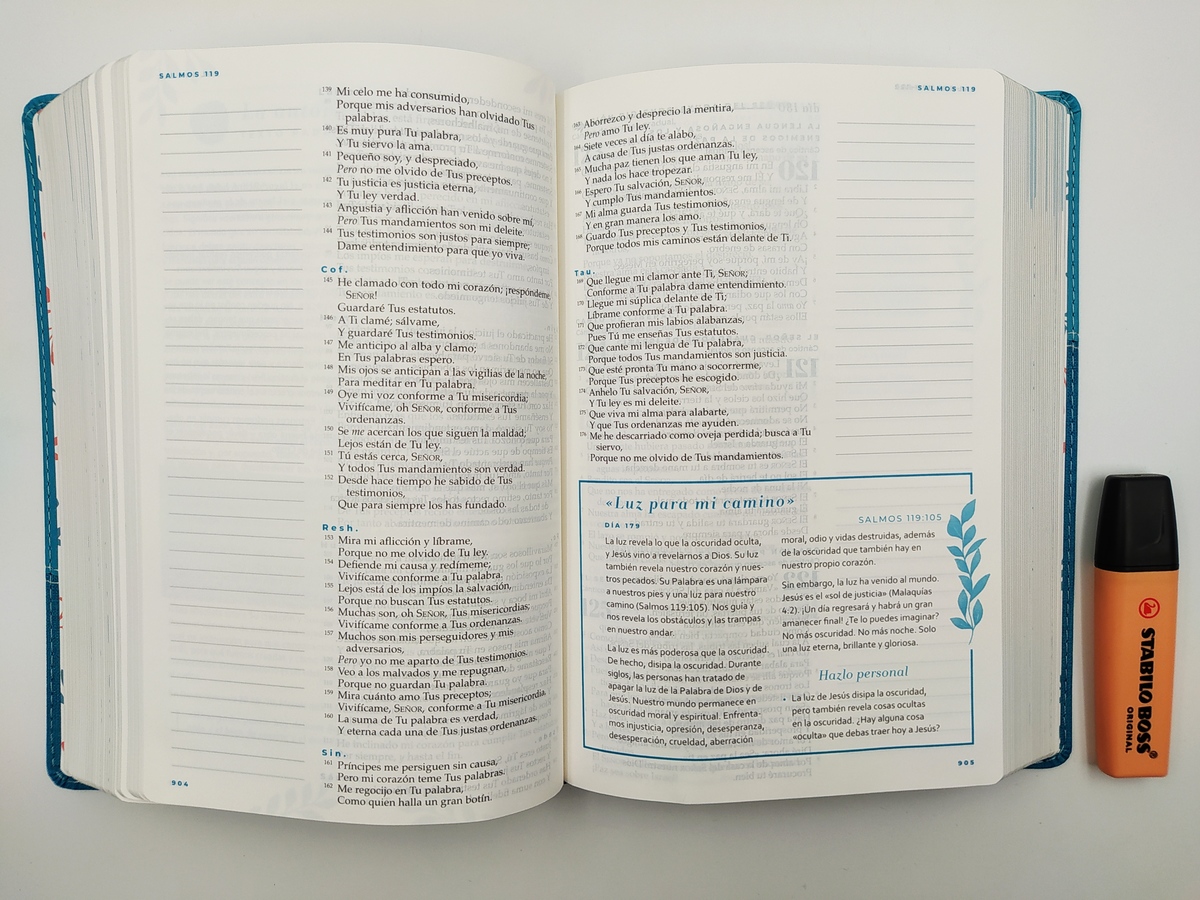 SALMOS 119
139 Mi celo me ha consumido,
Porque mis adversarios han olvidado Tus
palabras.
140 Es muy pura Tu palabra,
Y Tu siervo la ama.
141 Pequeño soy, y despreciado,
Pero no me olvido de Tus preceptos.
142 Tu justicia es justicia eterna,
Y Tu ley verdad.
143 Angustia y aflicción han venido sobre mí,
Pero Tus mandamientos son mi deleite.
144 Tus testimonios son justos para siempre;
Dame entendimiento para que yo viva.
Cof.
145 He clamado con todo mi corazón; ¡respóndeme,
SEÑOR!
Guardaré Tus estatutos.
146 A Ti clamé; sálvame,
Y guardaré Tus testimonios.
147 Me anticipo al alba y clamo;
En Tus palabras espero.
148 Mis ojos se anticipan a las vigilias de la noche,
Para meditar en Tu palabra.
149 Oye mi voz conforme a Tu misericordia;
Vivifícame, oh SEÑOR, conforme a Tus
ordenanzas.
150 Se me acercan los que siguen la maldad;
Lejos están de Tu ley.
151 Tú estás cerca, SEÑOR,
Y todos Tus mandamientos son verdad.
152 Desde hace tiempo he sabido de Tus
testimonios,
Que para siempre los has fundado.
Resh.
153 Mira mi aflicción y líbrame,
Porque no me olvido de Tu ley.
154 Defiende mi causa y redímeme;
Vivifícame conforme a Tu palabra.
155 Lejos está de los impíos la salvación,
Porque no buscan Tus estatutos.
156 Muchas son, oh SEÑOR, Tus misericordias;
Vivifícame conforme a Tus ordenanzas.
157 Muchos son mis perseguidores y mis
adversarios,
Pero yo no me aparto de Tus testimonios.
158 Veo a los malvados y me repugnan,
Porque no guardan Tu palabra.
159 Mira cuánto amo Tus preceptos;
Vivifícame, SEÑOR, conforme a Tu misericordia.
160 La suma de Tu palabra es verdad,
Y eterna cada una de Tus justas ordenanzas.
Sin.
161 Príncipes me persiguen sin causa,
Pero mi corazón teme Tus palabras.
162 Me regocijo en Tu palabra,
Como quien halla un gran botín.
904
SALMOS 119
163 Aborrezco y desprecio la mentira,
Pero amo Tu ley.
164 Siete veces al día te alabo,
A causa de Tus justas ordenanzas.
165 Mucha paz tienen los que aman Tu ley,
Y nada los hace tropezar.
166 Espero Tu salvación, SEÑOR,
Y cumplo Tus mandamientos.
167 Mi alma guarda Tus testimonios,
Y en gran manera los amo.
168 Guardo Tus preceptos y Tus testimonios,
Porque todos mis caminos están delante de Ti.
Tau.
169 Que llegue mi clamor ante Ti, SEÑOR;
Conforme a Tu palabra dame entendimiento.
170 Llegue mi súplica delante de Ti;
Líbrame conforme a Tu palabra.
171 Que profieran mis labios alabanzas,
Pues Tú me enseñas Tus estatutos.
172 Que cante mi lengua de Tu palabra,
Porque todos Tus mandamientos son justicia.
173 Que esté pronta Tu mano a socorrerme,
Porque Tus preceptos he escogido.
174 Anhelo Tu salvación, SEÑOR,
Y Tu ley es mi deleite.
175 Que viva mi alma para alabarte,
Y que Tus ordenanzas me ayuden.
176 Me he descarriado como oveja perdida; busca a Tu
siervo,
Porque no me olvido de Tus mandamientos.
«Luz para mi camino»
DÍA 179
SALMOS 119:105
La luz revela lo que la oscuridad oculta,
y Jesús vino a revelarnos a Dios. Su luz
también revela nuestro corazón y nues-
tros pecados. Su Palabra es una lámpara
a nuestros pies y una luz para nuestro
camino (Salmos 119:105). Nos guía y
nos revela los obstáculos y las trampas
en nuestro andar.
La luz es más poderosa que la oscuridad.
De hecho, disipa la oscuridad. Durante
siglos, las personas han tratado de
apagar la luz de la Palabra de Dios y de
Jesús. Nuestro mundo permanece en
oscuridad moral y espiritual. Enfrenta-
mos injusticia, opresión, desesperanza,
desesperación, crueldad, aberración
moral, odio y vidas destruidas, además
de la oscuridad que también hay en
nuestro propio corazón.
Sin embargo, la luz ha venido al mundo.
Jesús es el «sol de justicia» (Malaquías
4:2). ¡Un día regresará y habrá un gran
amanecer final! ¿Te lo puedes imaginar?
No más oscuridad. No más noche. Solo
una luz eterna, brillante y gloriosa.
Hazlo personal
• La luz de Jesús disipa la oscuridad,
pero también revela cosas ocultas
en la oscuridad. ¿Hay alguna cosa
«oculta» que debas traer hoy a Jesús?
905
STABILO BOSS®
ORIGINAL